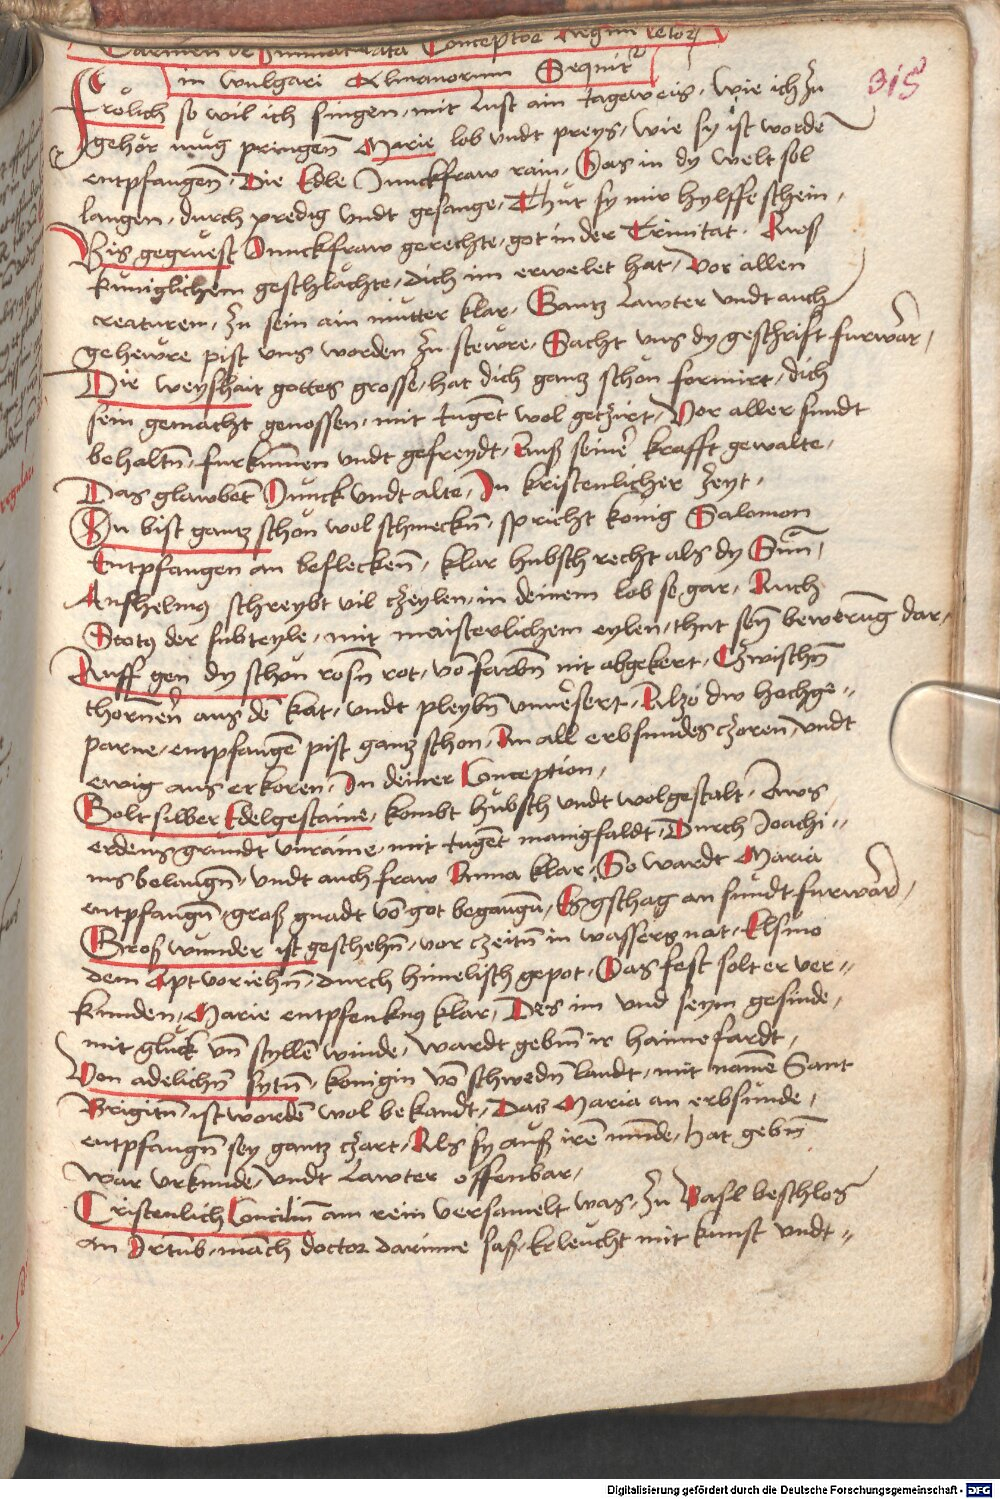 Carmen de Immaculata Conceptoe Regine celoꝝ
in wulgari Almanorum Sequitr
Frölich so wil ich singen, mit lust ain tageweis, wie ich zu
gehör mug pringenn Marie lob undt preys, wie sy ist wordē
entpfangenn, Die Edle Junckfraw rain, Das in dy welt sol
langen, durch predig undt gesange, Thut sy mir hylffe schein,
Bis gegruest Junckfraw gerechte, got in der Trinitat, Auß
kuniglichem geschlächte, dich im erwelet hat, Vor allen
creaturen, zu sein ain mutter klar, Gantz lawter undt auch
gehewre pist uns worden zu stewre, Sacht uns dy geschrift furwar,
Die weyshait gottes grosse, hat dich gantz schon formirt, dich
sein gemacht genossen, mit tugēt wol getzirt, Vor aller sundt
behaltn̄, furkumen undt gefreydt, Auß seiner krafft gewalte,
Das glawbēt Junck undt alte, In kristenlicher zeyt,
Du bist gantz schon wol schmeckn̄, spricht konig Salomon
Entpfangen an befleckenn̄, klar hubsch recht als dy Sun,
Anshelmus schreybt vil czeylen, in deinem lob so gar, Auch
Scotus der subteyle, mit maisterlichem eylen, thut sein̄ bewerūg dar,
Auff gen dy schon rosn̄ rot, vō farbn̄ nit abgekert, Czwischn̄
thornēn aus dē kat, undt pleybn̄ unverſert, Alzo dw hochge„
parne, entpfangē pist gantz schon, An all erbsundes czoren, undt
ewig aus erkoren, In deiner Conception,
Golt silber Edelgestaine, kombt hubsch undt wolgestalt, Aws
erdens grundt unraine, mit tugēt manigfaldt, Durch Joachi„
ms belangn̄, undt auch fraw Anna klar, So wardt Maria
entpfangn̄, groß gnadt vō got begangn̄, Es gschag an sundt furwar,
Groß wunder ist geschehn̄, vor czeitn̄ in wassers not, Elsino
dem Apt vorjehn̄, durch himelisch gepot, Das fest solt er ver„
kunden, Marie entpfenknus klar, Des im und seym gesinde,
mit gluck un̄ styllē winde, wardt gebn̄ ir haimefardt,
Von adelichn̄ sytn̄, konigin vō schwedn̄ landt, mit namē Sant
Brigitn̄, ist wordē wol bekandt, Das Maria an erbsunde,
entpfangn̄ sey gantz czart, Als sy auß irē munde, hat gebn̄
war urkunde, undt lawter offenbar,
Cristenlich Conciliū am rein versamelt was, zu Basl beschlos
an Irtūb, manch doctor darinne saß, Erleucht mit kunst undt„
315
Digitalisierung gefördert durch die Deutsche Forschungsgemeinschaft - DFG